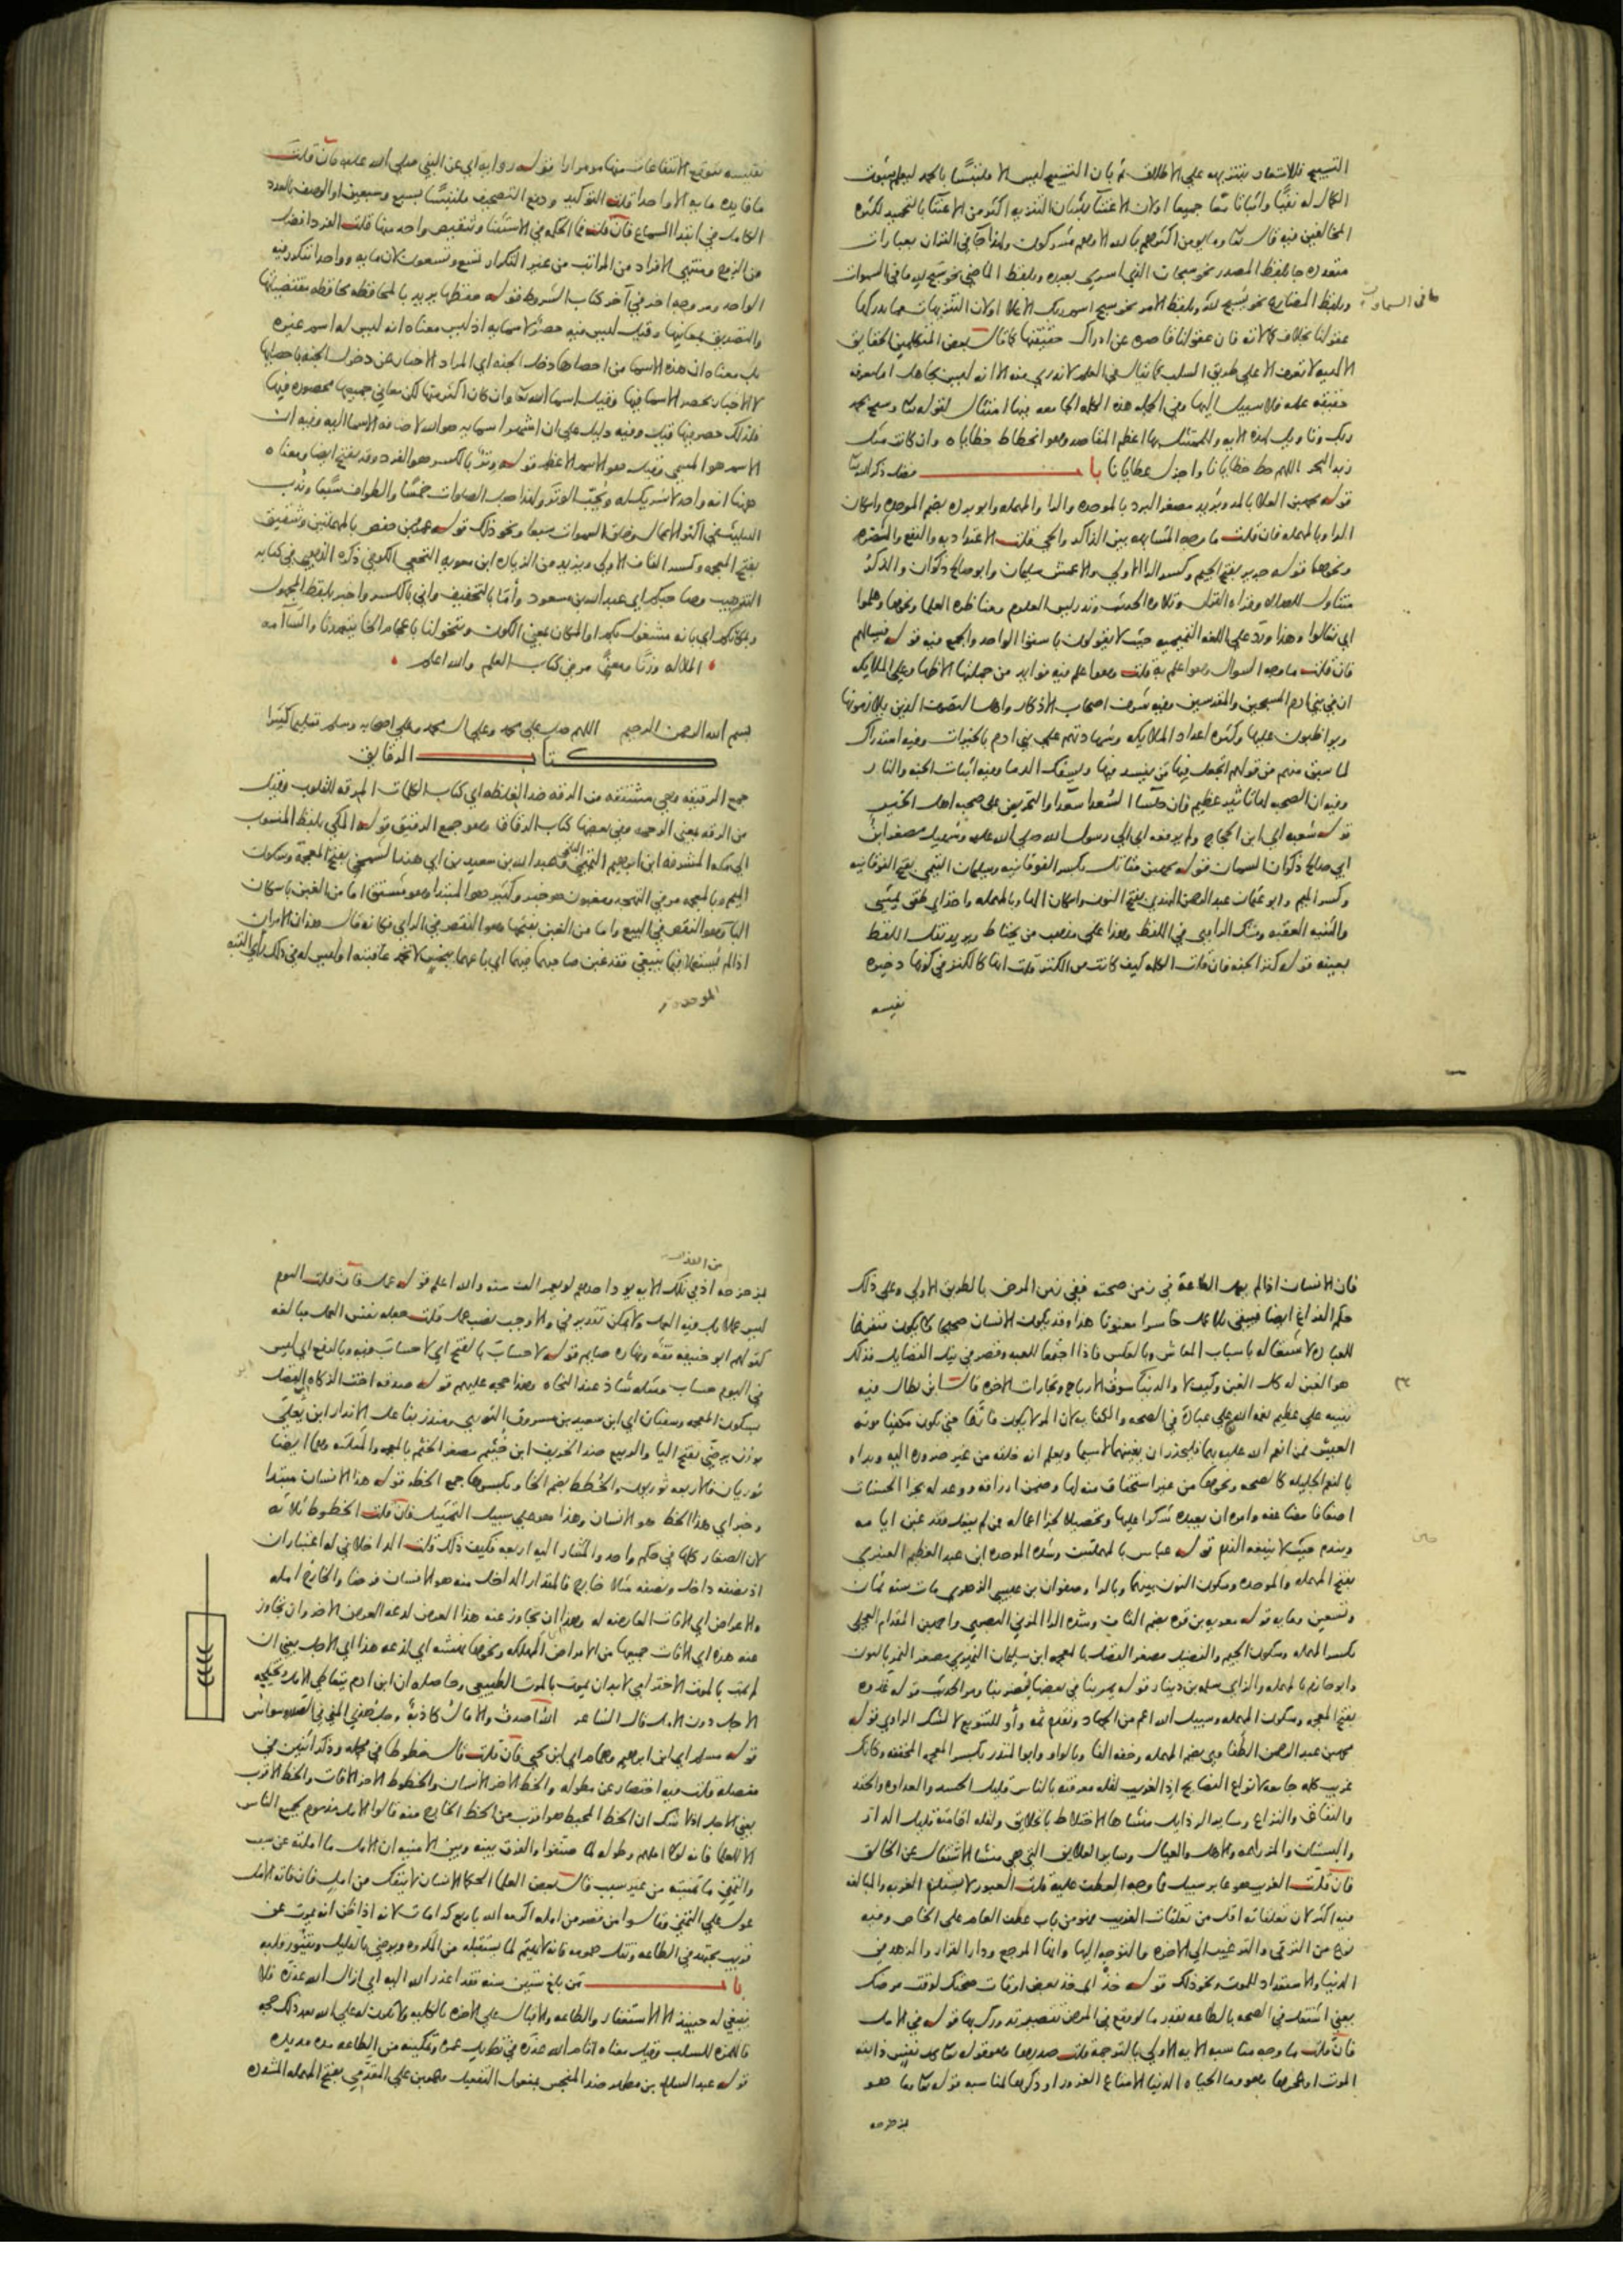 التسبيح فللاشعار بتنزيهه علي الاطلاق ثم بان التسبيح ليس الا ملتبسًا بالحمد ليعلم ثبوت
الكمال له نفيًا واثباتا معًا جميعا او لان الاعتنآ بشان التنزيه اكثر من الاعتنآ بالتحميد لكثرة
المخالفين فيه قال تعا وما يومن اكثرهم بالله الا وهم مشركون ولهذا جآ في القران بعبارات
متعدده جا بلفظ المصدر نحو سبحان الذي اسري بعبده وبلفظ الماضي نحو سبح لله ما في السموات
وبلفظ المضارع نحو يسبح لله وبلفظ الامر نحو سبح اسم ربك الاعلا او لان التنزيهات مما يدركها
ما في السماوات
عقولنا بخلاف كمالاته فان عقولنا قاصره عن ادراك حقيقتها كما قال بعض المتكلمين الحقايق
الالهيه لا تعرف الا علي طريق السلب كما يقال في العلم لا ندري منه الا انه ليس بجاهل اما معرفه
حقيقه علمه فلا سبيل اليها وفي الجمله هذه الكلمه الجامعه فيها امتثال لقوله تعا وسبح بحمد
ربك وتاويل لهذه الايه وللممتثل بها اعظم المقاصد وهو انحطاط خطاياه وان كانت مثل
زبد البحر اللهم حط خطايانا واجزل عطايانا باب فضل ذكر الله تعا
قوله محمد بن العلا بالمد وبريد مصغر البرد بالموحده والرا والمهمله وابو برده بضم الموحده واسكان
الرا وبالمهمله فان قلت ما وجه المشابهه بين الذاكر والحي قلت الاعتداد به والنفع والنصره
ونحوها قوله جرير بفتح الجيم وكسر الرا الاولي والاعمش سليمان وابو صالح ذكوان والذكر
متناول للصلاه وقراه القران وتلاوه الحديث وتدريس العلوم ومناظره العلما ونحوها وهلموا
اي تعالوا وهذا ورد علي اللغه التميميه حيث لا يقولون باستوا الواحد والجمع فيه قوله فيسالهم
فان قلت ما وجه السوال وهو اعلم به قلت وهو اعلم فيه فوايد من جملتها الاظهار علي الملايكه
ان في بني ادم المسبحين والمقدسين وفيه شرف اصحاب الاذكار واهل التصوف الذين يلازمونها
ويواظبون عليها وكثره اعداد الملايكه وشهادتهم علي بني ادم بالخيرات وفيه استدراك
لما سبق منهم من قولهم اتجعل فيها من يفسد فيها ويسفك الدما وفيه اثبات الجنه والنار
وفيه ان الصحبه لها تاثير عظيم وان جلسا السعدا سعدا والتحريض علي صحبه اهل الخير
قوله شعبه اي ابن الحجاج ولم يرفعه اي الي رسول الله صلي الله عليه وسهيل مصغر ابن
ابي صالح ذكوان السمان قوله محمد بن مقاتل بكسر الفوقانيه وسليمان التيمي بفتح الفوقانيه
وكسر الميم وابو عثمان عبد الرحمن النهدي بفتح النون واسكان الها وبالمهمله واخذ اي طفق يمشي
والثنيه العقبه وشك الراوي في اللفظ وهذا علي مذهب من يحتاط ويريد نقل اللفظ
بعينه قوله كنز الجنه فان قلت الكلمه كيف كانت من الكنز قلت انها كالكنز في كونها ذخيره
نفيسه
نفيسه متوقع الانتفاعات منها مرارا قوله رواية اي عن النبي صلي الله عليه فان قلت
ما فايده مايه الا واحدا قلت التوكيد ودفع التصحيف ملتبسًا بسبع وسبعين او الوصف بالعدد
الكامل في ابتدا السماع فان قلت فما الحكمه في الاستثنا وتنقيص واحد منها قلت الفرد افضل
من الزوج ومنتهي الافراد من المراتب من غير التكرار تسع وتسعون لان مايه وواحدا تتكرر فيه
الواحد ومر وجه اخر في آخر كتاب الشروط قوله حفظها يريد بالمحافظه محافظه مقتضياتها
والتصديق بمعانيها وقيل ليس فيه حصر لاسمايه اذ ليس معناه انه ليس له اسم غيره
بل معناه ان هذه الاسما من احصاها دخل الجنه اي المراد الاخبار عن دخول الجنه باحصايها
لا الاخبار بحصر الاسما فيها وقيل اسما الله تعا وان كان اكثر منها لكن معاني جميعها محصوره فيها
فلذلك حصر فيها قيل وفيه دليل علي ان اشهر اسمايه هو الله لاضافه الاسما اليه وفيه ان
الاسم هو المسمي وقيل هو الاسم الاعظم قوله وترٌ بالكسر هو الفرد وقد يفتح ايضا ومعناه
ههنا انه واحد لا شريك له ويُحبّ الوتر ولهذا جعل الصلوات خمسًا والطواف سبعًا وندب
التثليث في اكثر الاعمال وخلق السموات سبعا ونحو ذلك قوله عمر بن حفص بالمهملتين وشقيق
بفتح المعجمه وكسر القاف الاولي ويزيد من الزياده ابن معويه النخعي الكوفي ذكره الذهبي في كتابه
التذهيب وصاحبكم ابي عبد الله بن مسعود وأمَا بالتخفيف واني بالكسر واخبر بلفظ المجهول
وبمكانكم اي بانه مشغول بكم او المكان بمعني الكون ويتخولنا باعجام الخا يتعهدنا والسآمه
الملاله وزنًا ومعنيً مر في كتاب العلم والله اعلم
بسم الله الرحمن الرحيم اللهم صل علي محمد وعلي ال محمد وعلي اصحابه وسلم تسليما كثيرا
كتاب الرقايق
جمع الرقيقه وهي مشتقه من الرقه ضد الغلظه اي كتاب الكلمات المرققه للقلوب وقيل
من الرقه بمعني الرحمه وفي بعضها كتاب الرقاق وهو جمع الرقيق قوله المكي بلفظ المنسوب
الي مكه المشرفه ابن ابراهيم التيمي البلخي وعبد الله بن سعيد بن ابي هند الشمخي بفتح المعجمة وسكون
الميم وبالمعجمه مر في التهجد ومغبون هو خبر وكثير هو المبتدا وهو مشتق اما من الغبن باسكان
البآ وهو النقص في البيع واما من الغبن بفتحها وهو النقص في الراي فكانه قال هذان الامران
اذا لم يُستعملا فيما ينبغي فقد غبن صاحبهما فيهما اي باعهما ببخسٍ لا تحمد عاقبته او ليس له في ذلك رأي البته
فان الانسان اذا لم يعمل الطاعة في زمن صحته ففي زمن المرض بالطريق الاولي وعلي ذلك
حكم الفراغ ايضا فيبقي بلا عمل خاسرا مغبونا هذا وقد يكون الانسان صحيحا ولا يكون متفرغا
للعباده لاشتغاله باسباب المعاش وبالعكس فاذا اجتمعا للعبد وقصر في نيل الفضايل فذلك
هو الغبن له كل الغبن وكيف لا والدنيا سوق الارباح وتجارات الاخره قال ابن بطال فيه
تنبيه علي عظيم نعمه الله علي عباده في الصحه والكفايه لان المرء لا يكون فارغًا حتي يكون مكفيا مونة
العيش فمن انعم الله عليه بهما فليحذر ان يغبنهما لا سيما ويعلم انه خلقه من غير ضروره اليه وبداه
بالنعم الجليله كالصحه ونحوها من غير استحقاق منه لها وضمن ارزاقه ووعد له بجزا الحسنات
اضعافا مضاعفه وامره ان يعبده شكرا عليها وتحصيلا لجزا اعماله فمن لم يفعل فقد غبن ايامه
ويندم حيث لا ينفعه الندم قوله عباس بالمهملتين وشده الموحده ابن عبد العظيم العنبري
بفتح المهمله والموحده وسكون النون بينهما وبالرا وصفوان بن عيسي الزهري مات سنه ثمان
وتسعين ومايه قوله معويه بن قره بضم القاف وشده الرا المزني البصري واحمد بن المقدام العجلي
بكسر المهمله وسكون الجيم والفضيل مصغر الفضل بالمعجمه ابن سليمان النميري مصغر النمر بالنون
وابو حازم بالمهمله والزاي سلمه بن دينار قوله يمر بنا في بعضها يُبصر بنا ومر الحديث قوله غدوه
بفتح المعجمه وسكون المهمله وسبيل الله اعم من الجهاد وتقدم ثمه وأو للتنويع لا لشك الراوي قوله
محمد بن عبد الرحمن الطُفا وي بضم المهمله وخفه الفا وبالواو وابو المنذر بكسر المعجمه المخففه وكانك
غريب كلمه جامعه لانواع النصايح اذ الغريب لقله معرفته بالناس قليل الحسد والعداوه والحقد
والنفاق والنزاع وساير الرذايل منشاها الاختلاط بالخلايق ولقله اقامته قليل الدار
والبستان والمزرعه والاهل والعيال وساير العلايق التي هي منشا الاشتغال عن الخالق
فان قلت الغريب هو عابر سبيل فما وجه العطف عليه قلت العبور لا يستلزم الغربه والمبالغه
فيه اكثر لان تعلقاته اقل من تعلقات الغريب فهو من باب عطف العام علي الخاص وفيه
نوع من الترقي والترغيب الي الاخره والتوجه اليها وانها المرجع ودار القرار والزهد في
الدنيا والاستعداد للموت ونحو ذلك قوله خذ اي خذ بعض اوقات صحتك لوقت مرضك
يعني اشتغل في الصحه بالطاعه بقدر ما لو وقع في المرض تقصير تدورك بها قوله في الامل
فان قلت ما وجه مناسبه الايه الاولي بالترجمة قلت صدرها وهو قوله تعا كل نفس ذايقه
الموت او عجزها وهو وما الحياه الدنيا الا متاع الغرور او ذكرهما لمناسبه قوله تعا وما هو
بمزحزحه
من العذاب
بمزحزحه اذ في تلك الايه يود احدهم لو يعمر الف سنه والله اعلم قوله عمل فان قلت اليوم
ليس عملا بل فيه العمل ولا يمكن تقدير في والا وجب نصب عمل قلت جعله نفس العمل مبالغه
كقولهم ابو حنيفه فقه ونهاره صايم قوله لا حسابَ بالفتح اي لا حساب فيه وبالرفع اي ليس
في اليوم حساب ومثله شاذ عند النحاه وهذا حجه عليهم قوله صدقه اخت الزكاه ابن الفضل
بسكون المعجمه وسفيان اي ابن سعيد بن مسروق الثوري ومنذر بفاعل الانذار ابن يَعلَي
بوزن يرضي بفتح اليا والربيع ضد الخريف ابن خُثيم مصغر الخثم بالمعجمه والمثلثه وهما ايضا
ثوريان فالاربعه ثوريون والخُطط بضم الخا وبكسرها جمع الخطه قوله هذا الانسان مبتدا
وخبر اي هذا الخط هو الانسان وهذا هو علي سبيل التمثيل فان قلت الخطوط ثلاثه
لان الصغار كلها في حكم واحد والمشار اليه اربعه فكيف ذلك قلت الداخلاني له اعتباران
اذ نصفه داخل ونصفه مثلا خارج فالمقدار الداخل منه هو الانسان فرضا والخارج امله
والاعراض اي الافات العارضه له وهذا ان تجاوز عنه هذا العرض لدغه العرض الاخر وان تجاوز
عنه هذه اي الافات جميعها من الامراض المهلكه ونحوها نهشه اي لدغه هذا اي الاجل يعني ان
لم يمت بالموت الاخترامي لا بد ان يموت بالموت الطبيعي وحاصله ان ابن ادم يتعاطي الامل ويختلجه
الاجل دون الامل قال الشاعر
قوله مسلم اي ابن ابراهيم وهمام اي ابن يحيي فان قلت قال خطوطا في مجمله وذكر اثنين في
مفصله قلت فيه اختصار عن مطوله والخط الاخر الانسان والخطوط الاخر الافات والخط الاقرب
يعني الاجل اذ لا شك ان الخط المحيط هو اقرب من الخط الخارج منه قالوا الامل مذموم لجميع الناس
الا للعلما فانه لولا املهم وطوله لما صنفوا والفرق بينه وبين الامنيه ان الامل ما املته عن سبب
والتمني ما تمنيته من غير سبب قال بعض العلما الحكما الانسان لا ينفك من امل فان فاته الامل
عول علي التمني وقالوا من قصر من امله اكرمه الله باربع كرامات لانه اذا ظن انه يموت عن
قريب يجتهد في الطاعه وتقل همومه فانه لا يهتم لما يستقبله من المكروه ويرضي بالقليل ويتنور قلبه
باب من بلغ ستين سنه فقد اعذر الله اليه اي ازال الله عذره فلا
ينبغي له حينيذ الا الاستغفار والطاعه والاقبال علي الاخره بالكليه ولا يكون له علي الله بعد ذلك حجه
فالهمزه للسلب وقيل معناه اقام الله عذره في تطويل عمره وتمكينه من الطاعه مده مديده
قوله عبد السلام بن مطهر ضد المنجس بمفعول التفعيل وعمر بن علي المقدمي بفتح المهمله المشدده